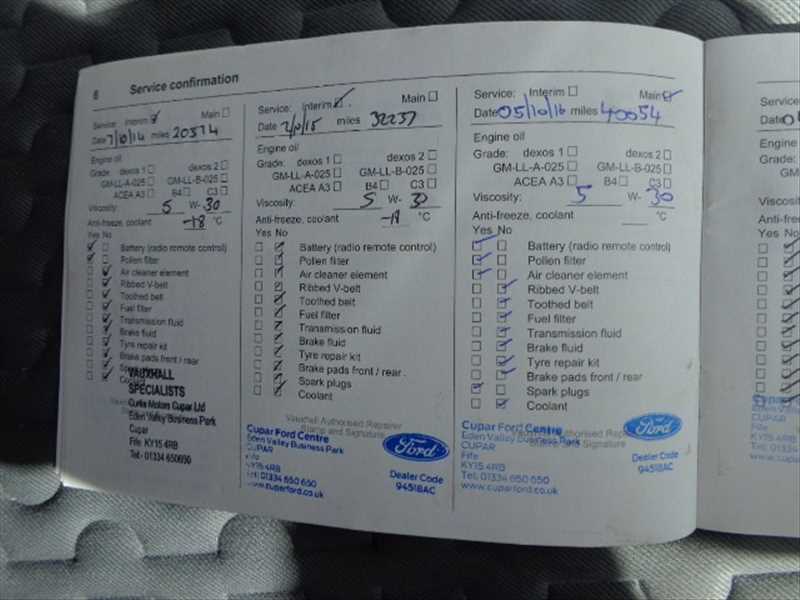 6 Service confirmation
Service: Interim ☑ Main ☐
Date 7/10/14 miles 20574
Engine oil
Grade: dexos 1 ☐ dexos 2 ☐
GM-LL-A-025 ☐ GM-LL-B-025 ☐
ACEA A3 ☐ B4 ☐ C3 ☐
Viscosity: 5 W- 30
Anti-freeze, coolant -18 °C
Yes No
Battery (radio remote control)
Pollen filter
Air cleaner element
Ribbed V-belt
Toothed belt
Fuel filter
Transmission fluid
Brake fluid
Tyre repair kit
Brake pads front / rear
VAUXHALL
SPECIALISTS
Curtis Motors Cupar Ltd
Eden Valley Business Park
Cupar
Fife: KY15 4RB
Tel:- 01334 650650
Service: Interim ☑ Main ☐
miles 32237
Engine oil
Grade: dexos 1 ☐ dexos 2 ☐
GM-LL-A-025 ☐ GM-LL-B-025 ☐
ACEA A3 ☐ B4 ☐ C3 ☐
Viscosity: 5 W- 30
Anti-freeze, coolant °C
Yes No
Battery (radio remote control)
Pollen filter
Air cleaner element
Ribbed V-belt
Toothed belt
Fuel filter
Transmission fluid
Brake fluid
Tyre repair kit
Brake pads front / rear
Spark plugs
Coolant
Vauxhall Authorised Repairer
Stamp and Signature
Cupar Ford Centre
Eden Valley Business Park
CUPAR
Fife
KY15 4RB
Tel. 01334 650 650
www.cuparford.co.uk
Ford
Dealer Code
94518AC
Service: Interim ☐ Main ☑
Date 05/10/16 miles 40054
Engine oil
Grade: dexos 1 ☐ dexos 2 ☐
GM-LL-A-025 ☐ GM-LL-B-025 ☐
ACEA A3 ☐ B4 ☐ C3 ☐
Viscosity: 5 W- 30
Anti-freeze, coolant °C
Yes No
Battery (radio remote control)
Pollen filter
Air cleaner element
Ribbed V-belt
Toothed belt
Fuel filter
Transmission fluid
Brake fluid
Tyre repair kit
Brake pads front / rear
Spark plugs
Coolant
Authorised
and Signature
Cupar Ford Centre
Eden Valley Business Park
CUPAR
Fife
KY15 4RB
Tel. 01334 650 650
www.cuparford.co.uk
Ford
Dealer Code
94518AC
Service:
Date
Engine oil
Grade:
Viscosity:
Anti-freeze,
Yes No